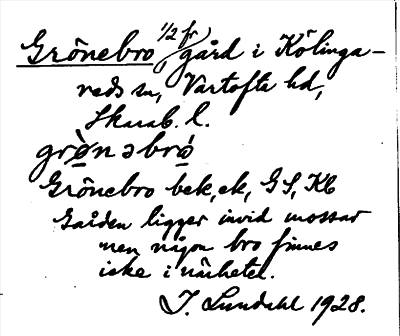 Grönebro 1/2 fr gård i Kölinga-
reds sn, Vartofta hd,
Skarab. l.
grònəbró
Grönebro bek, ek, GS, Kb
Gården ligger invid mossar
men någon bro finnes
icke i närheten.
J. Lundahl 1928.